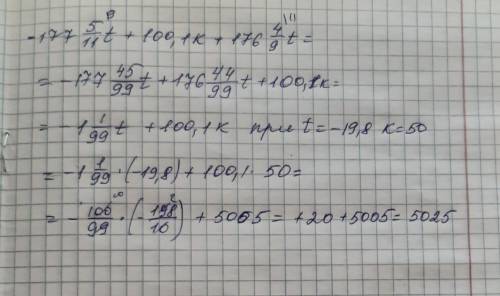 -177 5/11 t + 100,1к + 176 4/9 t =
= -177 45/99 t + 176 44/99 t + 100,1к =
= -1 1/99 t + 100,1к при t = -19,8 к = 50
= -1 1/99 · (-19,8) + 100,1 · 50 =
= - 100/99 · (- 198/10) + 5005 = +20 + 5005 = 5025